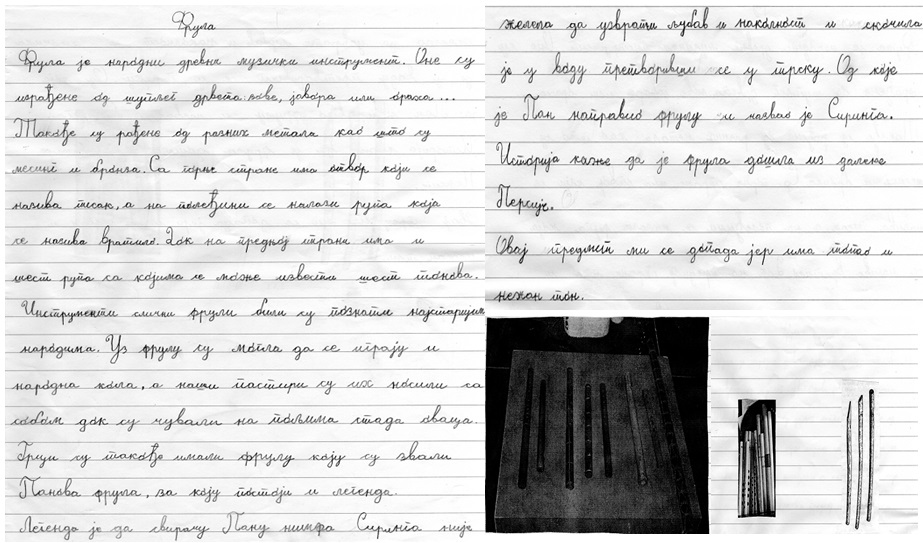 Фрула
Фрула је народни древни музички инструмент. Оне су
израђене од шупљег дрвета: зове, јавора или ораха...
Такође су рађене од разних метала као што су
месинг и бронза. Са горње стране има отвор који се
назива писак, а на полеђини се налази рупа која
се назива вратило. Док на предњој страни има и
шест рупа са којима се може извести шест тонова.
Инструменти слични фрули били су познати најстаријим
народима. Уз фрулу су могла да се играју и
народна кола, а наши пастири су их носили са
собом док су чували на пољима стада оваца.
Грци су такође имали фрулу коју су звали
Панова фрула, за коју постоји и легенда.
Легенда је да свирачу Пану нимфа Сиринга није
желела да узврати љубав и наколност и скочила
је у воду претворивши се у трску. Од које
је Пан направио фрулу и назвао је Сиринга.
Историја каже да је фрула дошла из далеке
Персије.
Овај предмет ми се допада јер има топао и
нежан тон.